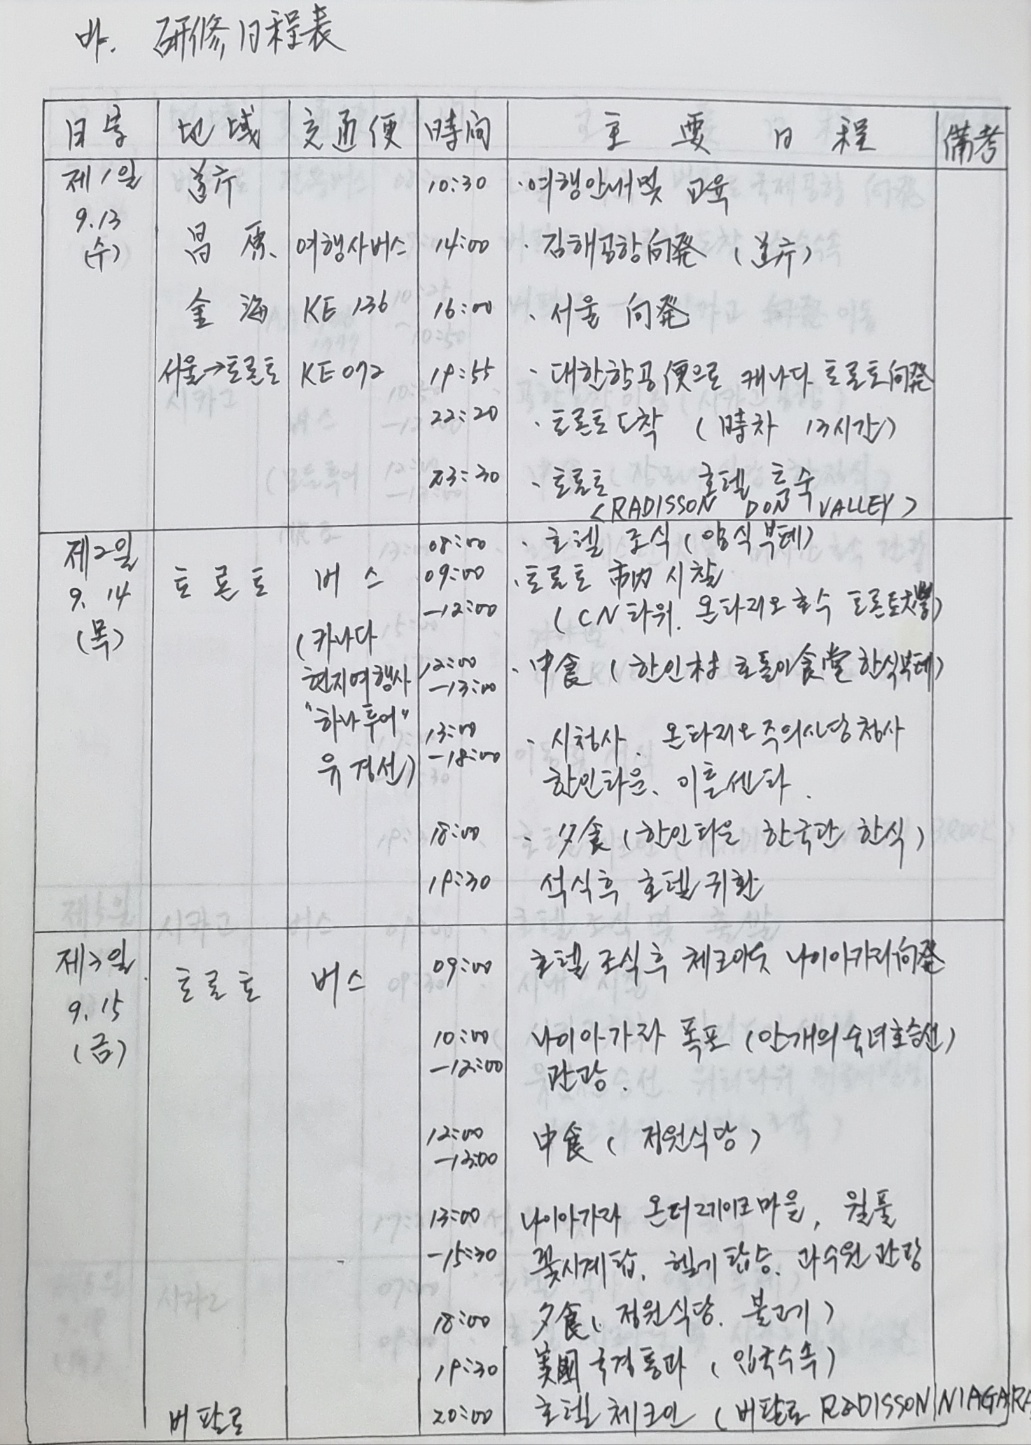 바. 研修日程表
日字 地域 交通便 時間 主要日程 備考
제1일 道庁 10:30 ·여행안내 및 교육
9.13
(水) 昌原 여행사버스 14:00 ·김해공항 向発 (道庁)
金海 KE 136 16:00 ·서울 向発
서울→토론토 KE 072 19:55 ·대한항공便으로 캐나다 토론토 向発
22:20 ·토론토 도착 (時차 13시간)
23:30 ·토론토 호텔 투숙
(RADISSON DON VALLEY)
제2일 08:00 ·호텔 조식 (양식 부페)
9. 14 토론토 버스 09:00 ·토론토 市内 시찰
(목) -12:00 (CN타워. 온타리오 호수 토론토大學)
(카나다
현지여행사 12:00 ·中食 (한인村 호돌이食堂 한식부페)
-13:00
"하나투어" 13:00 ·시청사. 온타리오주의사당청사
유경선) -18:00 한인타운. 이튼센타.
18:00 ·夕食 (한인타운 한국관 한식)
19:30 석식후 호텔 귀환
제3일 09:00 호텔 조식후 체크아웃 나이아가라向発
토론토 버스
9. 15
(금) 10:00 나이아가라 폭포 (안개의 숙녀호승선)
-12:00 관광.
12:00 中食 (정원식당)
-13:00
13:00 나이아가라 온더레이크마을, 월풀
-15:30 꽃시계탑. 헬기탑승. 과수원 관광
18:00 夕食 (정원식당. 불고기)
19:30 美國 국경통과 (입국수속)
버팔로 20:00 호텔 체크인 (버팔로 RADISSON NIAGARA